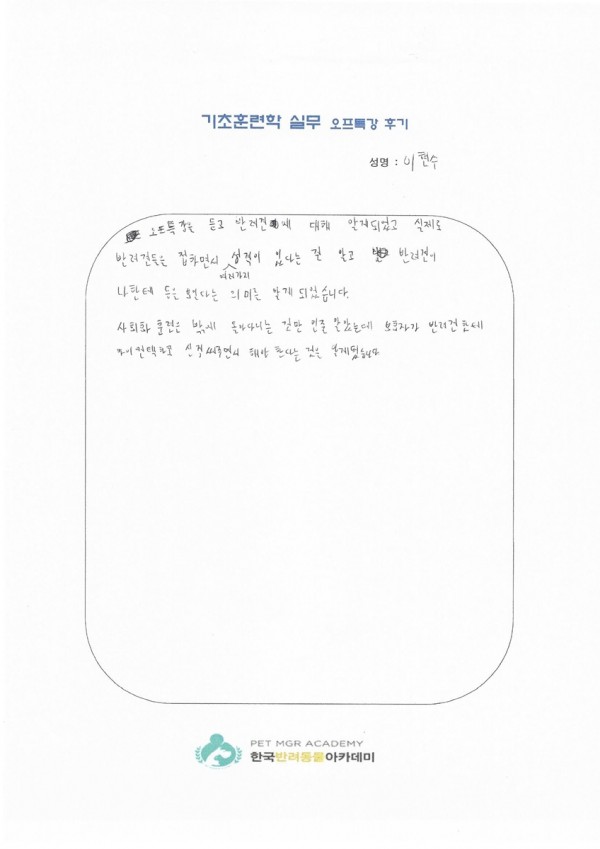 기초훈련학 실무 오프특강 후기
성명 : 이현수
오프특강을 듣고 반려견에 대해 알게되었고 실제로
반려견들을 접하면서 성격이 있다는 걸 알고 반려견이
여러가지
나한테 등을 보인다는 의미를 알게 되었습니다.
사회화 훈련은 밖에 돌아다니는 건만 인줄 알았는데 보호자가 반려견한테
신경써주면서 해야 한다는 것을 알게됬습니다
PET MGR ACADEMY
한국반려동물아카데미